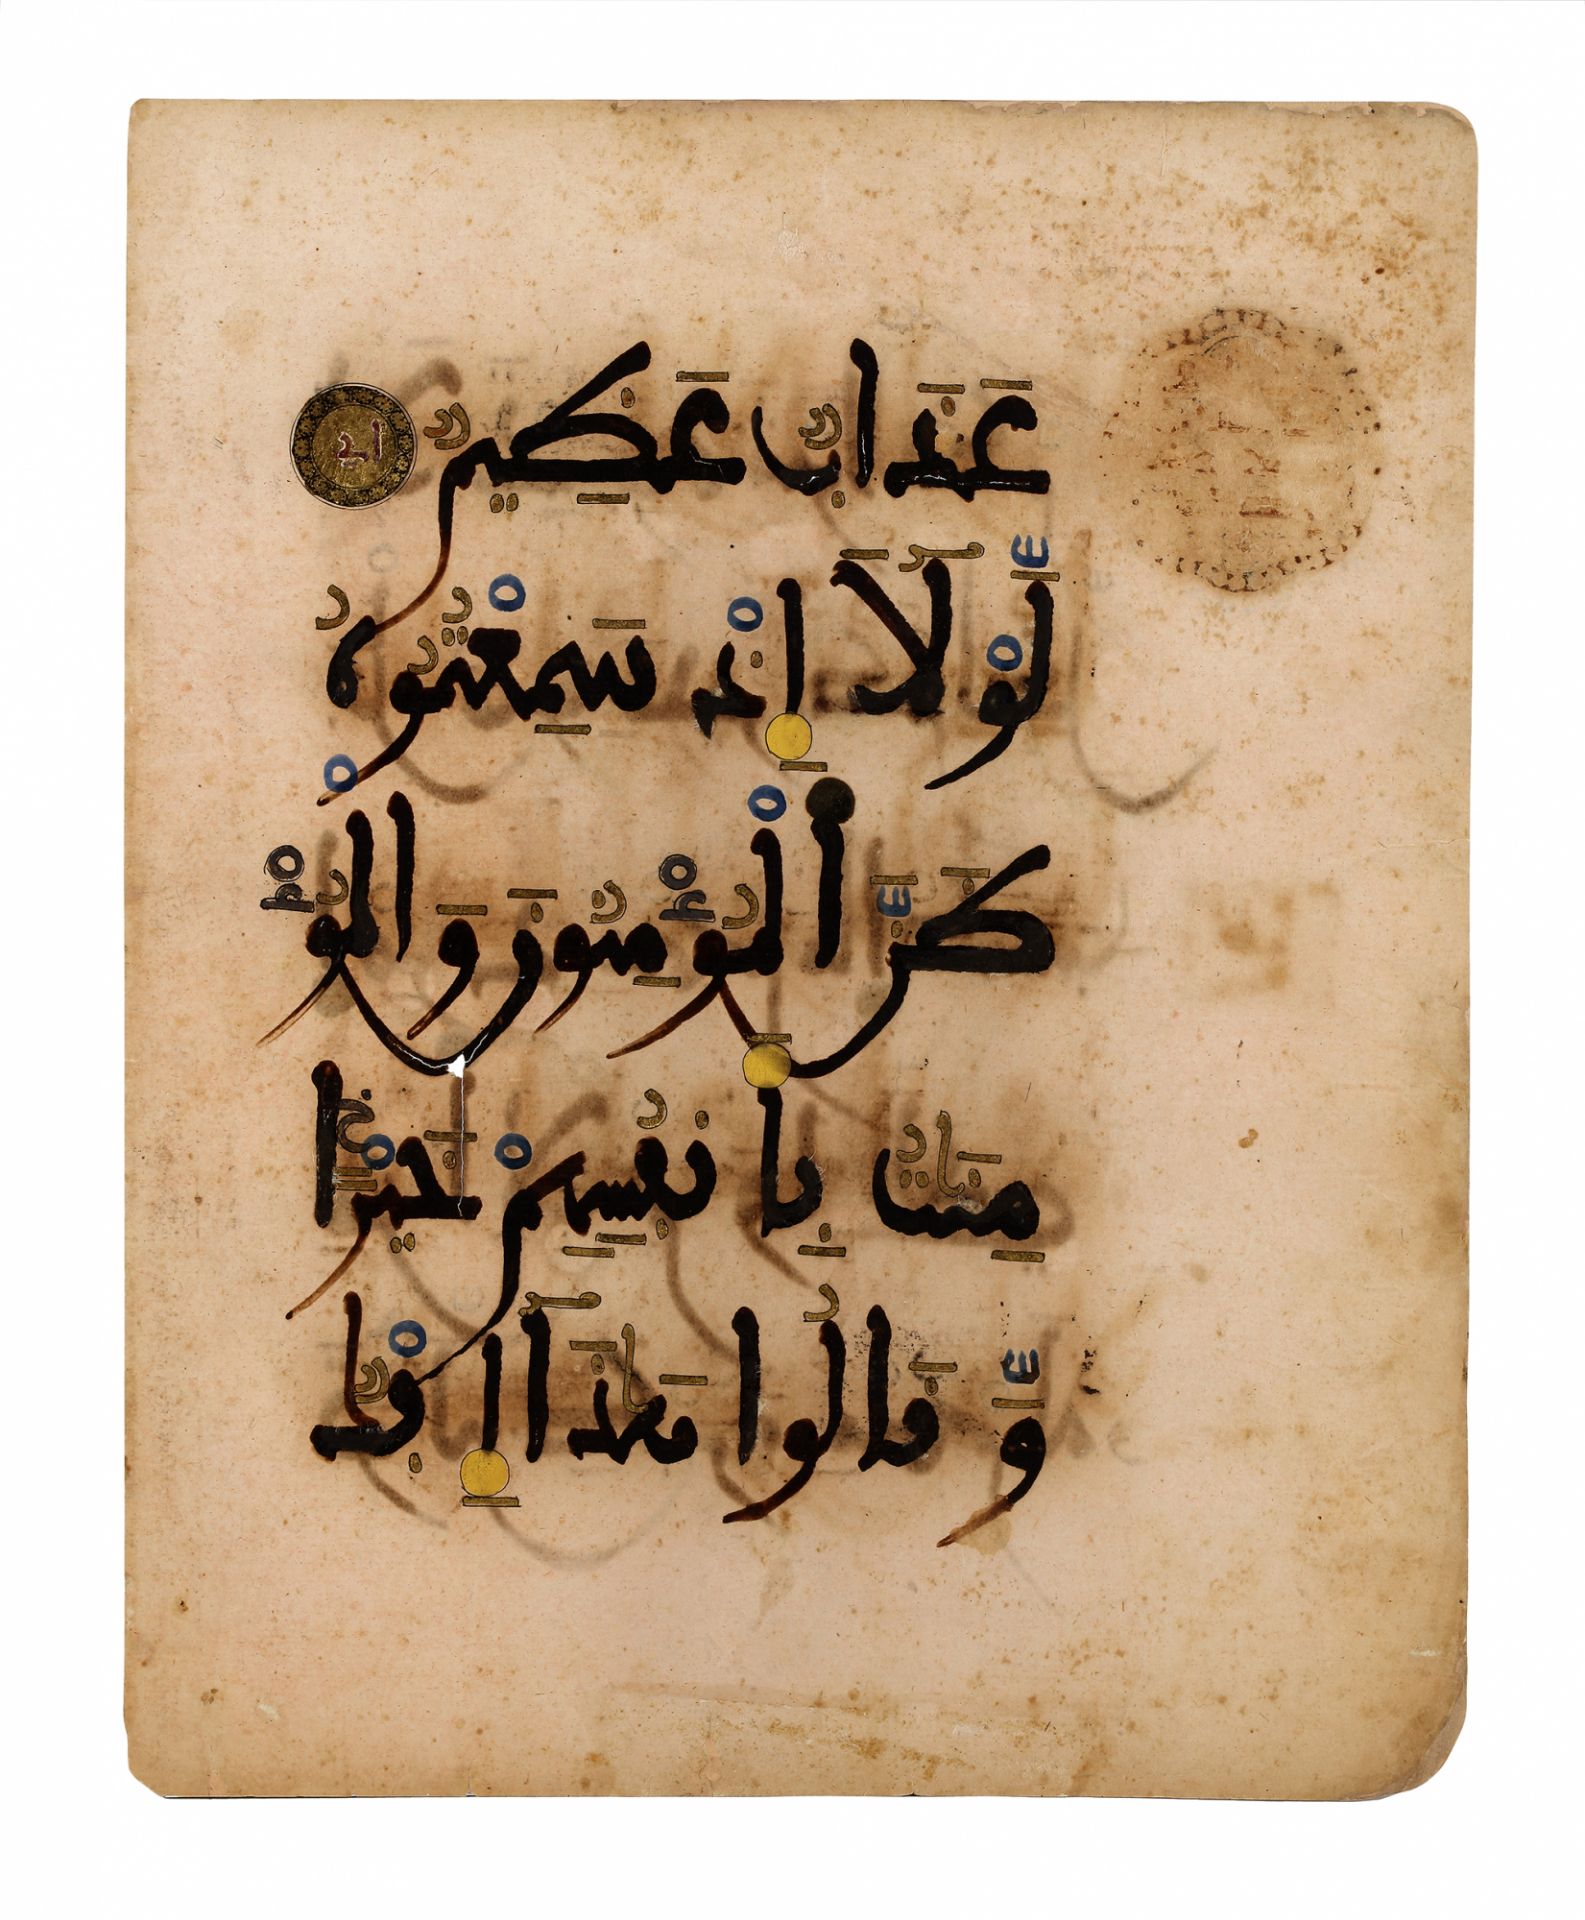 عَذَابٌ عَظِيمٌ
لَّوْلَآ إِذْ سَمِعْتُمُوهُ
ظَنَّ ٱلْمُؤْمِنُونَ وَالْمُؤْ
مِنَٰتُ بِأَنفُسِهِمْ خَيْرًا
وَّقَالُوا هَٰذَآ إِفْكٌ